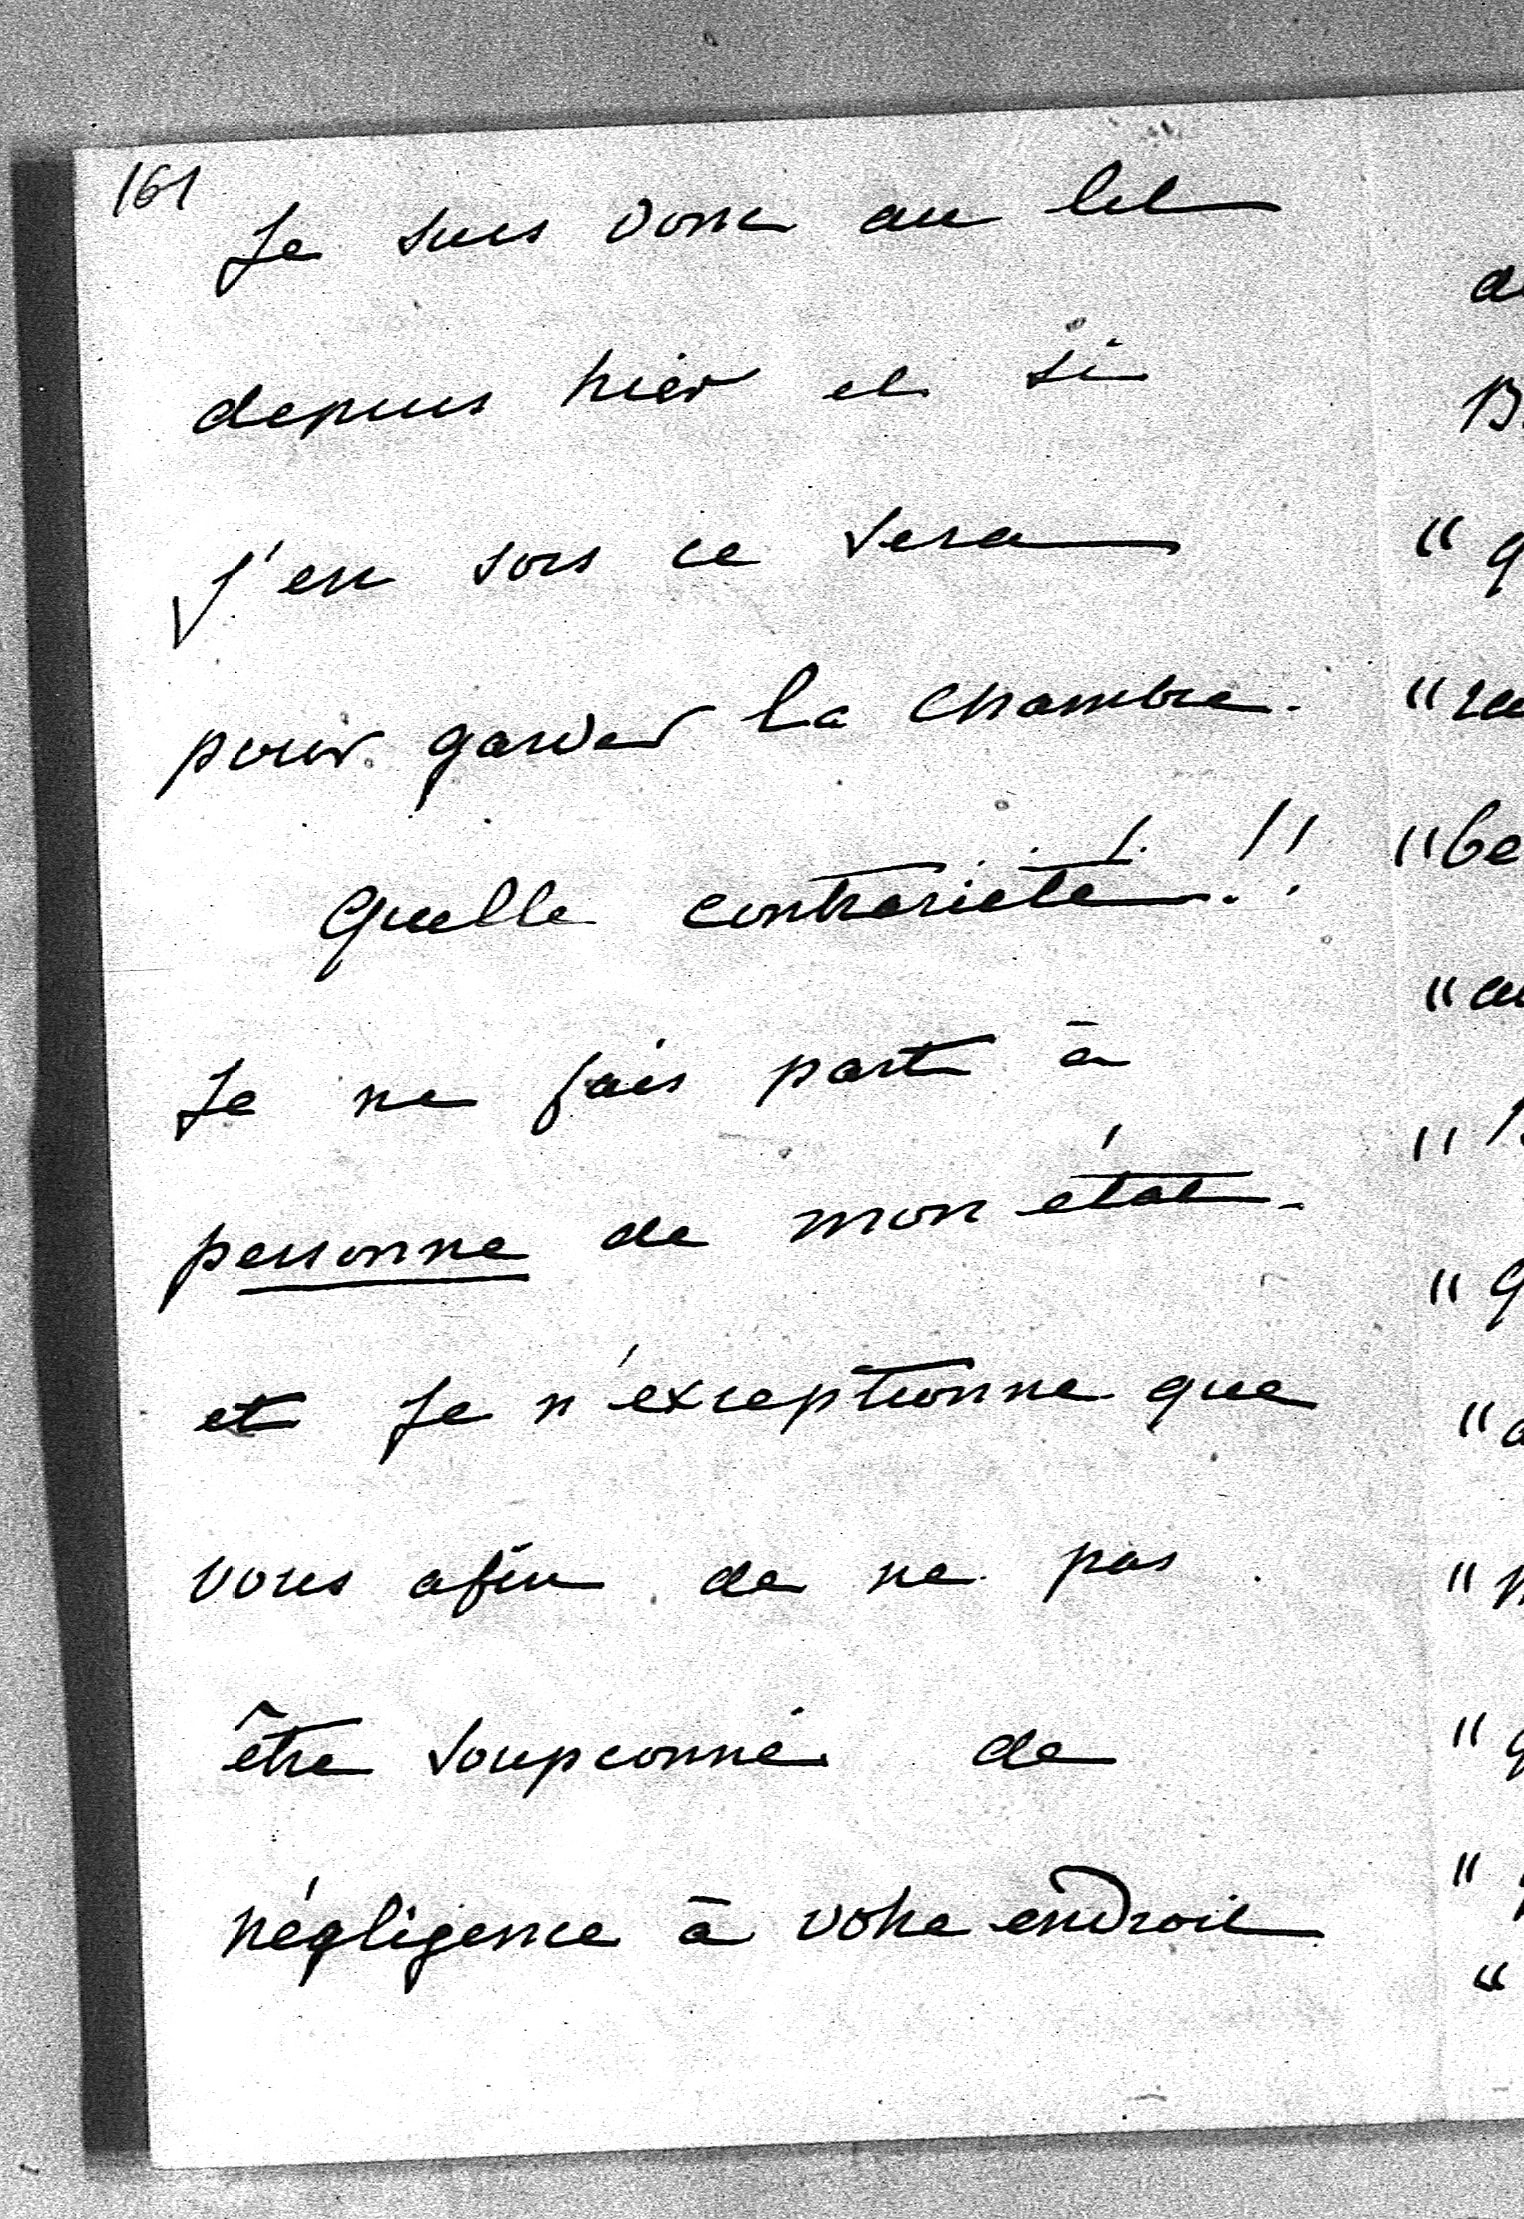 161
Je suis donc au lit
depuis hier et si
j'en sors ce sera
pour garder la chambre.
Quelle contrariété !!!
Je ne fais part à
personne de mon état.
et je n'exceptionne que
vous afin de ne pas
être soupçonné de
négligence à votre endroit